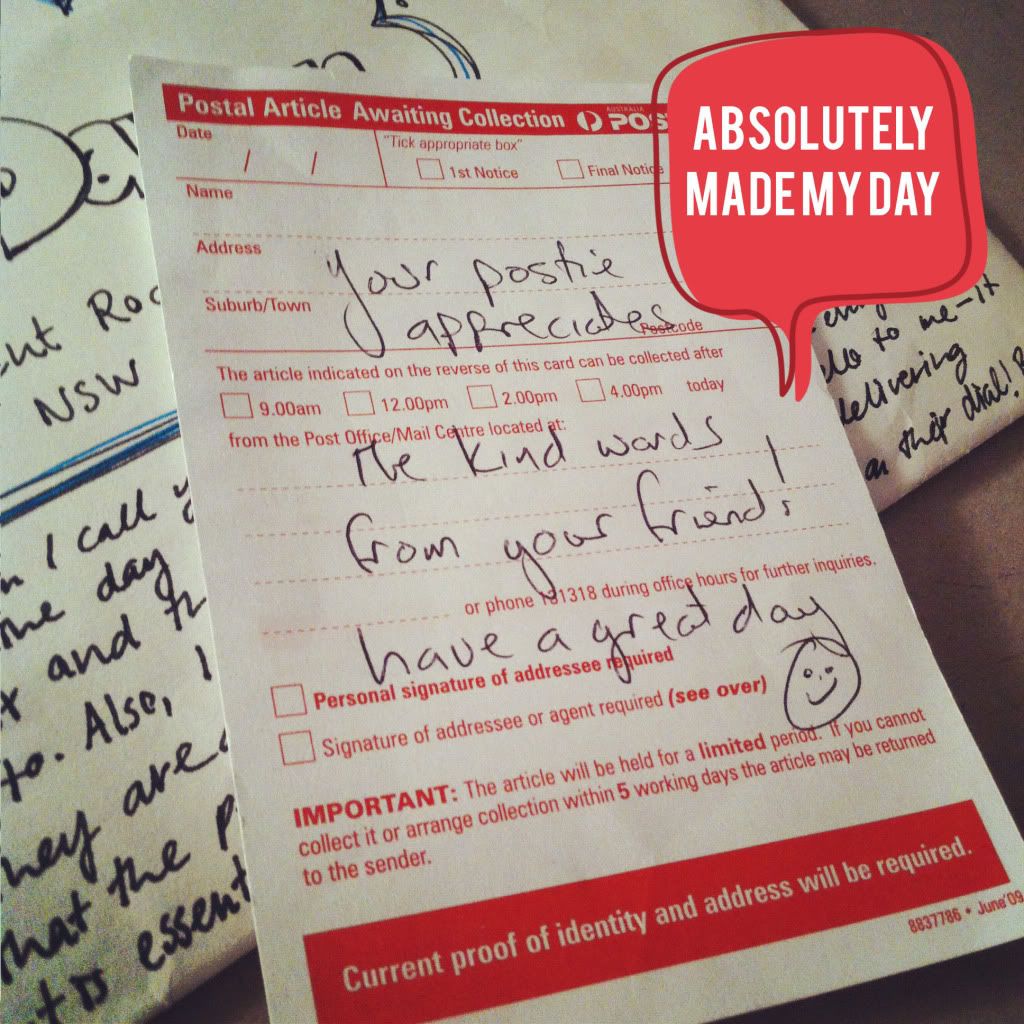 Postal Article Awaiting Collection AUSTRALIA POS
ABSOLUTELY
MADE MY DAY
Date / /
"Tick appropriate box"
1st Notice Final Notice
Name
Address
Your postie
Suburb/Town
appreciates
Postcode
The article indicated on the reverse of this card can be collected after
9.00am 12.00pm 2.00pm 4.00pm today
from the Post Office/Mail Centre located at:
the kind words
from your friend!
or phone 131318 during office hours for further inquiries.
have a great day
Personal signature of addressee required
Signature of addressee or agent required (see over)
IMPORTANT: The article will be held for a limited period. If you cannot
collect it or arrange collection within 5 working days the article may be returned
to the sender.
Current proof of identity and address will be required.
8837786 • June'09
NSW
I call
day
and
to. Also, I
hey are
what the
is essent
to me - it
delivering
dial!